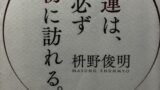 運は、
必ず
に訪れる。
枡野俊明
MASUNO SHUNMYO